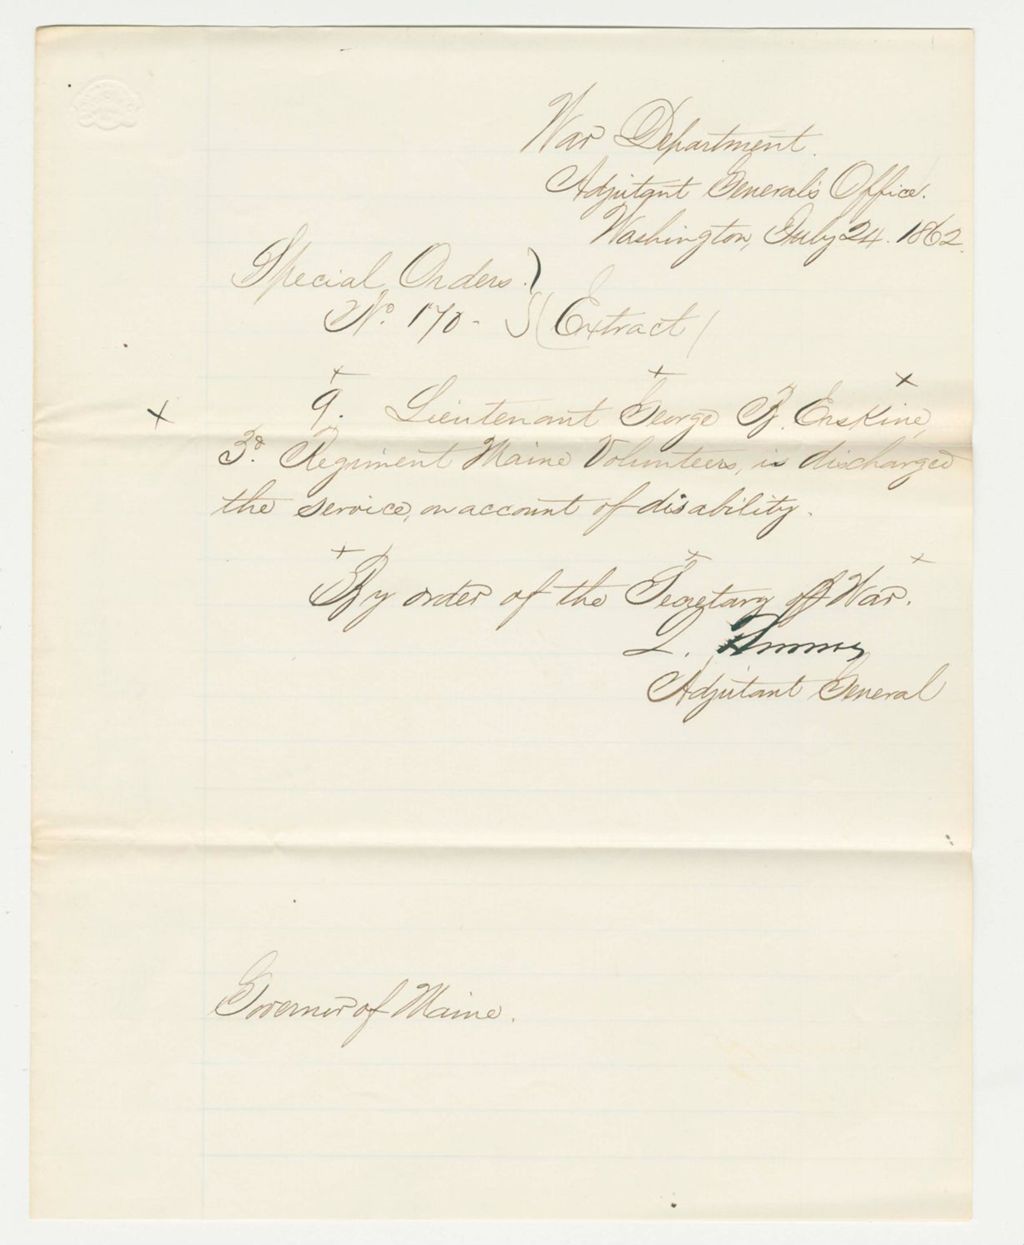 War Department.
Adjutant General's Office.
Washington, July 24. 1862.
Special Orders.}
No. 170 - } (Extract)
x x x x
9. Lieutenant George B. Erskine,
3d. Regiment Maine Volunteers, is discharged
the service, on account of disability.
x x x
By order of the Secretary of War.
L. Thomas
Adjutant General
Governor of Maine.